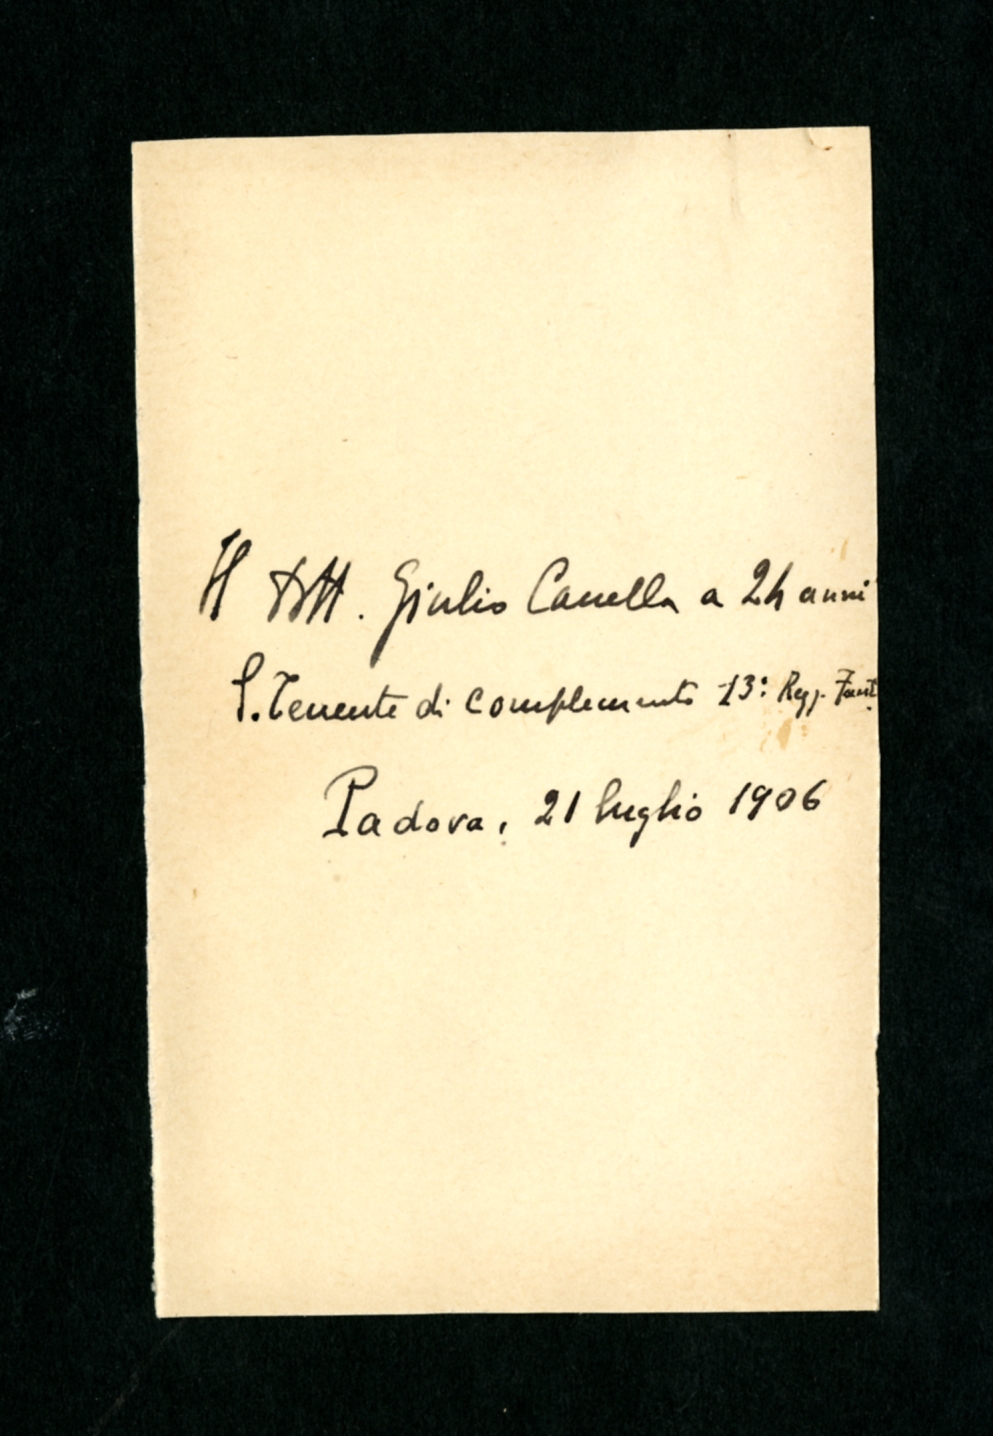 Il Dott. Giulio Canella a 24 anni
S. Tenente di complemento 13° Regg. Fant.
Padova, 21 luglio 1906